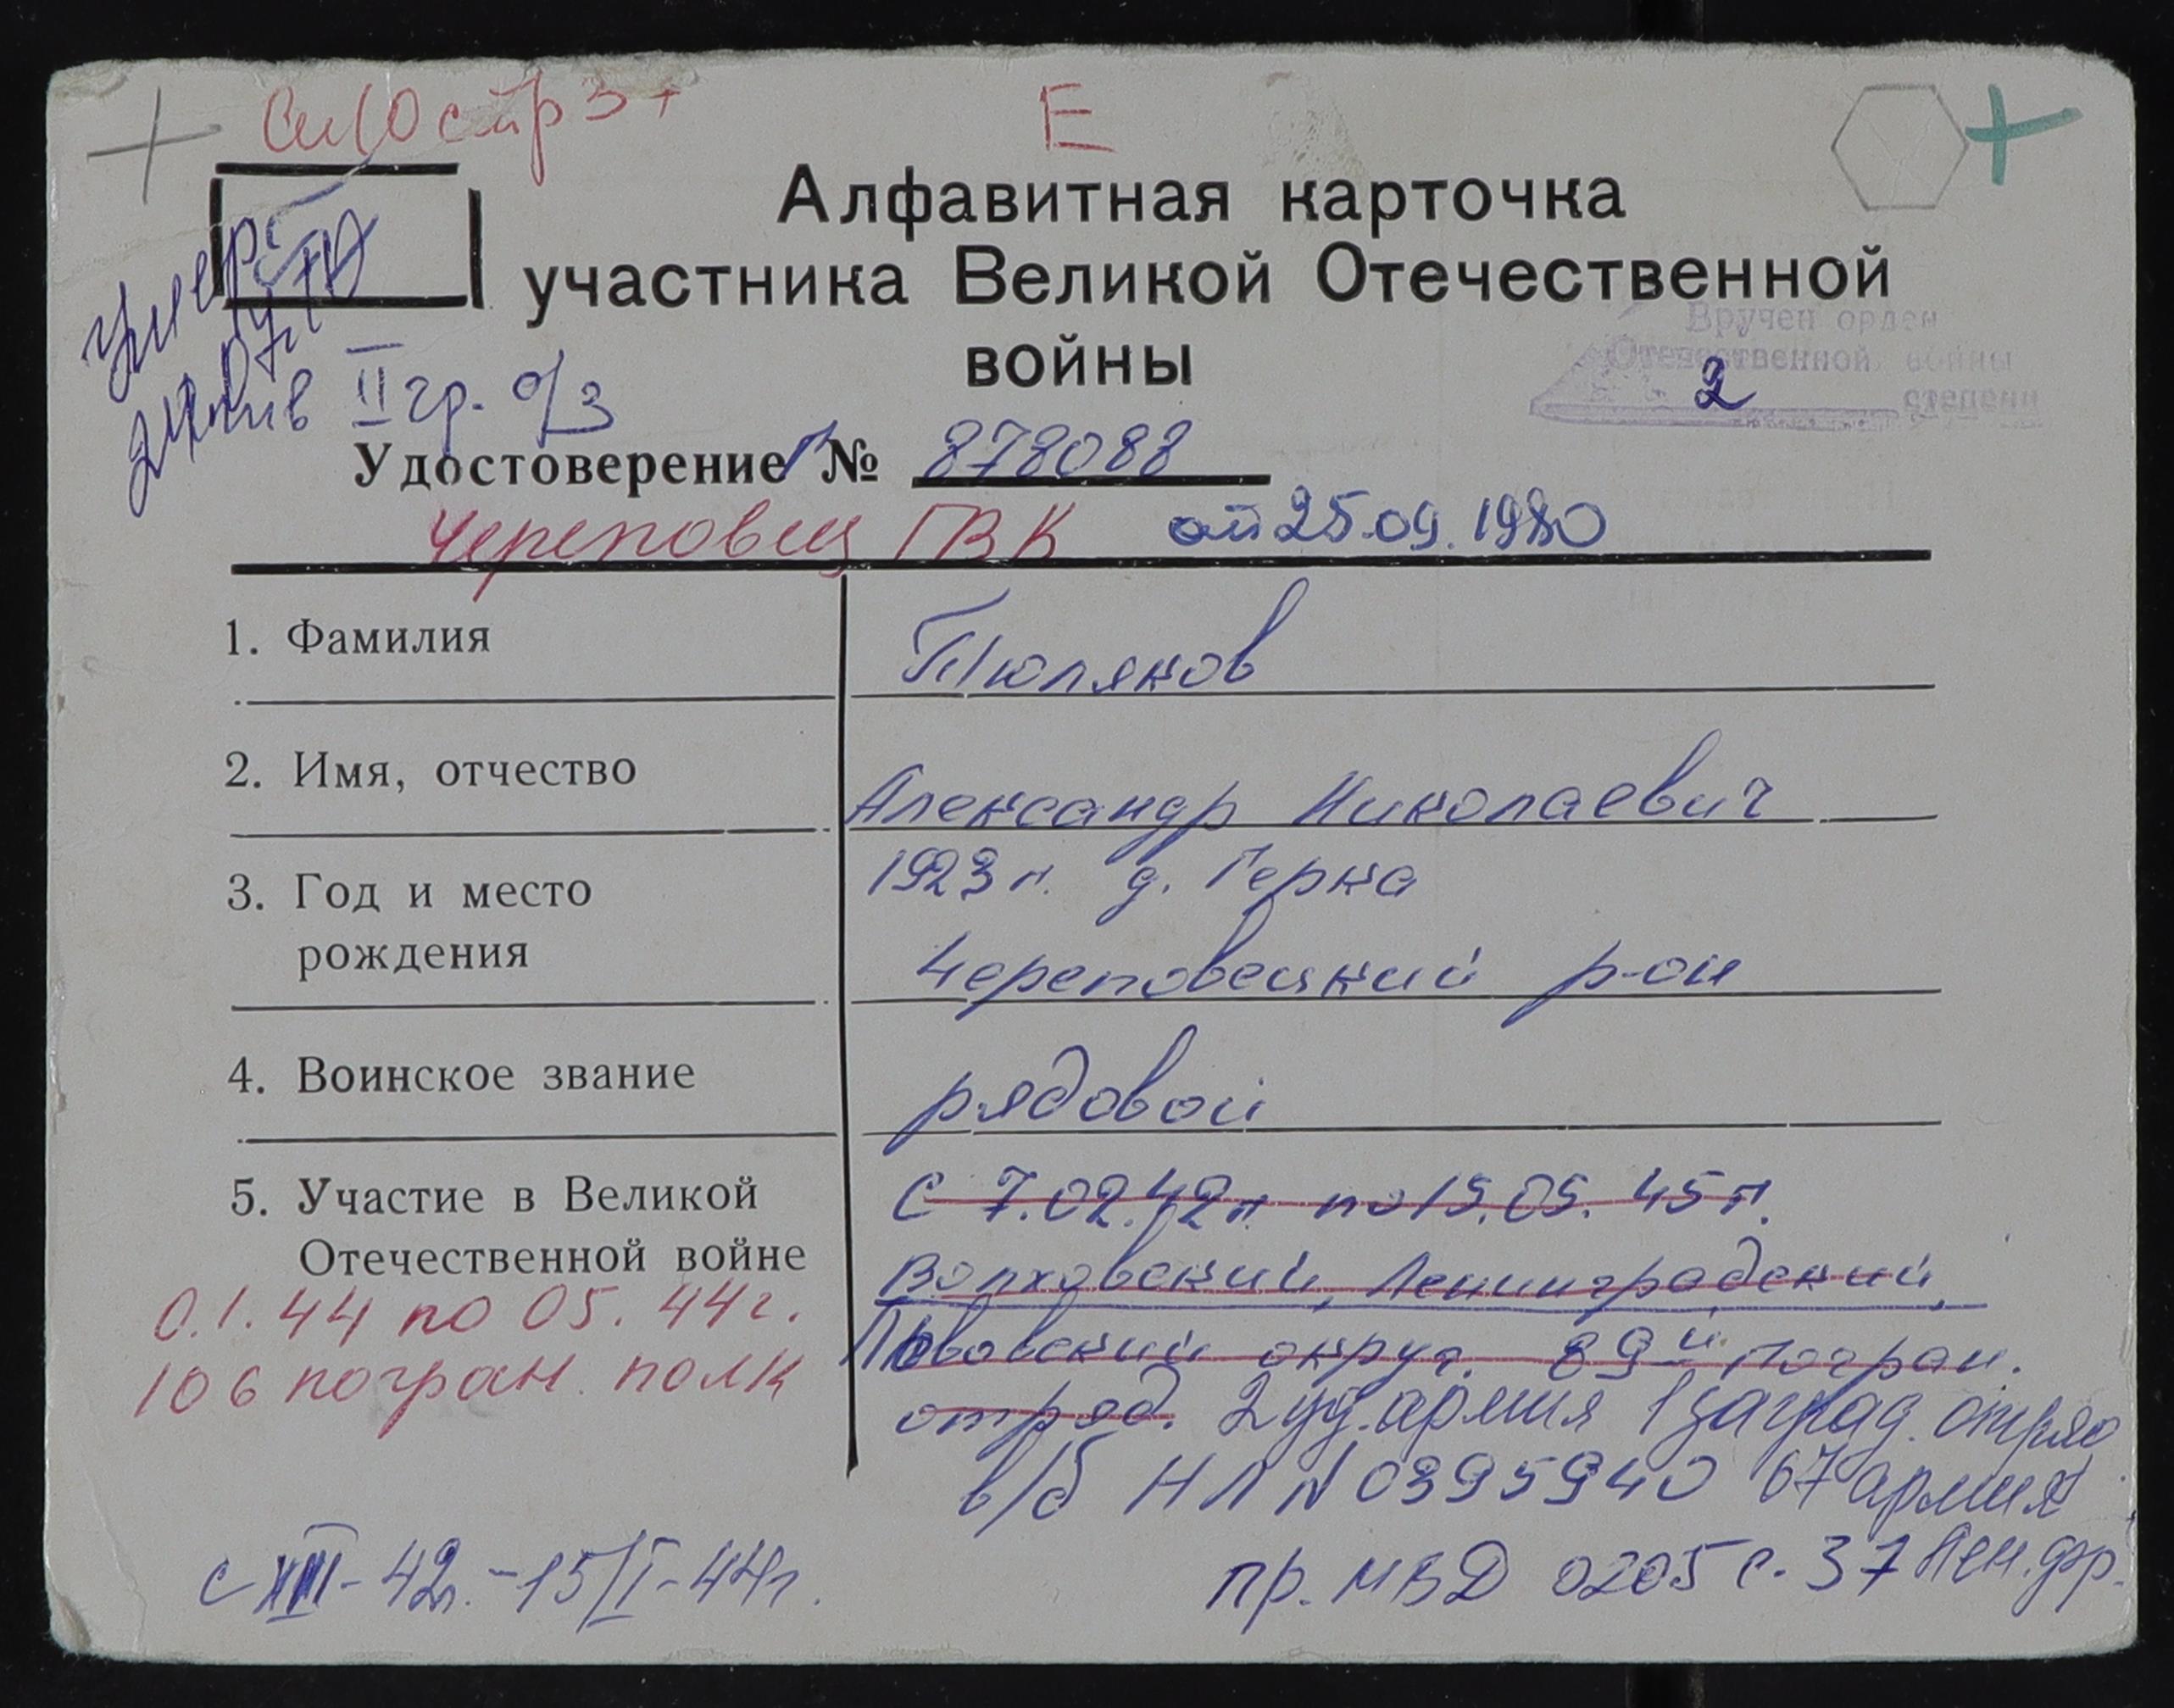 стр 3 +
Е
Алфавитная карточка
участника Великой Отечественной
войны
Вручен орден
Отечественной войны
2 степени
умер
II гр. о/з
Удостоверение № 878088
Череповец ГВК от 25.09.1980
1. Фамилия
Тюляков
2. Имя, отчество
Александр Николаевич
3. Год и место
рождения
1923 г. д. Герка
Череповецкий р-он
4. Воинское звание
рядовой
5. Участие в Великой
Отечественной войне
0.1.44 по 05.44г.
106 погран. полк
с 7.02.42г. по 15.05.45г.
Волховский, Ленинградский,
Львовский округ. 89й погран.
отряд. 2 уд. армия 1 заград. отряд
в/б НЛ N 0395940 67 армия
пр. МВД 0205 с. 37 Лен. фр.
с XII-42г.-15/I-44г.